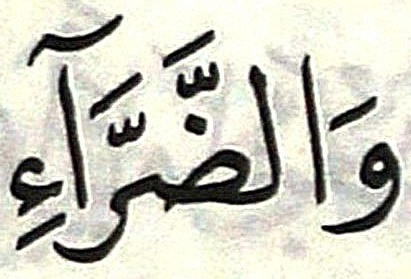 وَالضَّرَّآءِ